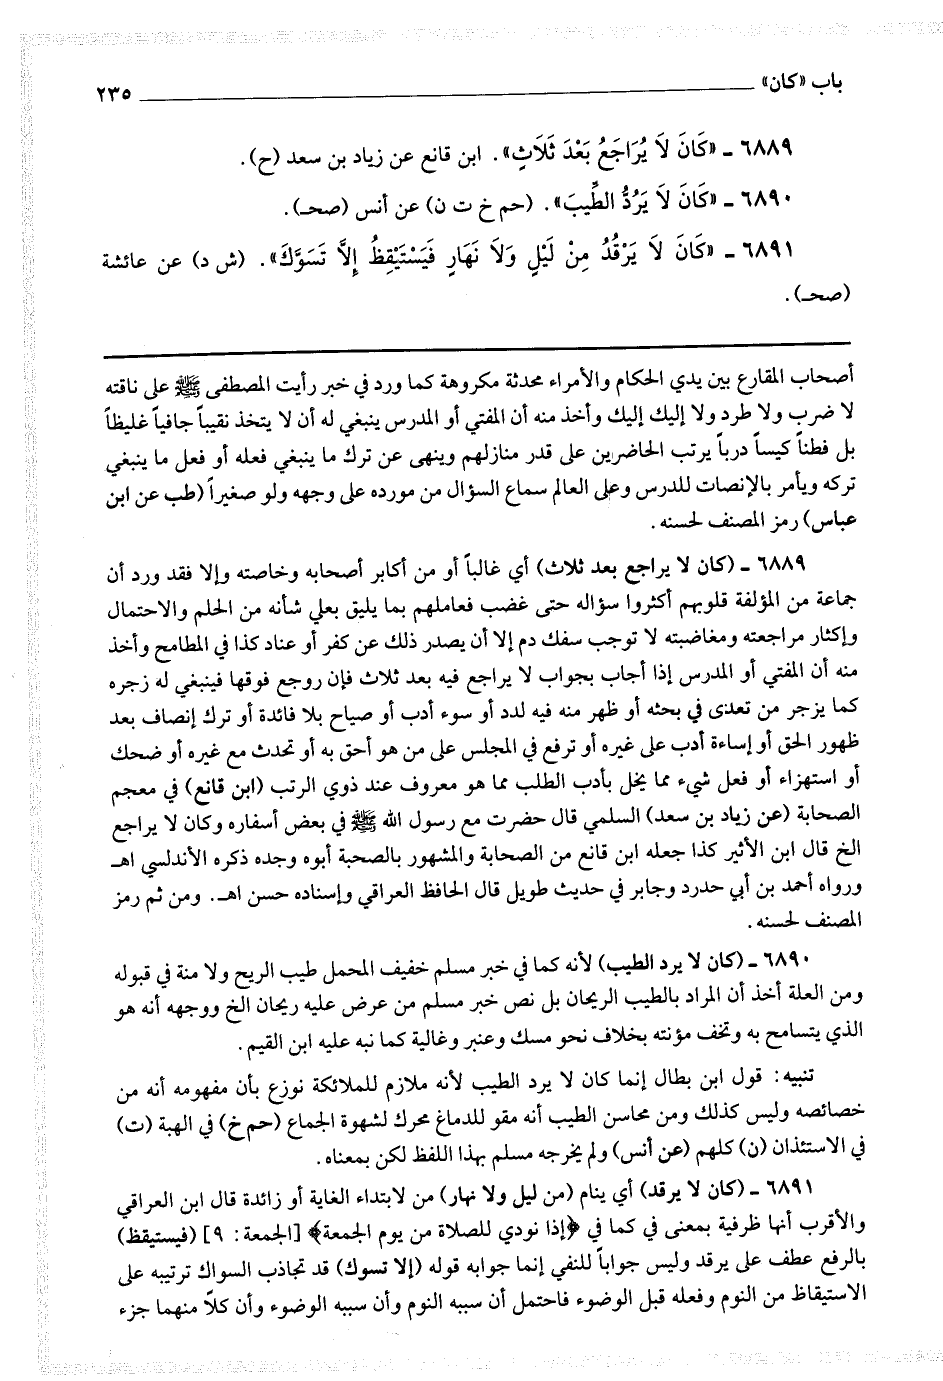 باب «كان» ٢٣٥
٦٨٨٩ ـ «كَانَ لَا يُرَاجَعُ بَعْدَ ثَلَاثٍ». ابن قانع عن زياد بن سعد (ح).
٦٨٩٠ ـ «كَانَ لَا يَرُدُّ الطِّيبَ». (حم خ ت ن) عن أنس (صحـ).
٦٨٩١ ـ «كَانَ لَا يَرْقُدُ مِنْ لَيْلٍ وَلَا نَهَارٍ فَيَسْتَيْقِظُ إِلَّا تَسَوَّكَ». (ش د) عن عائشة
(صحـ).
أصحاب المقارع بين يدي الحكام والأمراء محدثة مكروهة كما ورد في خبر رأيت المصطفى ﷺ على ناقته
لا ضرب ولا طرد ولا إليك إليك وأخذ منه أن المفتي أو المدرس ينبغي له أن لا يتخذ نقيباً جافياً غليظاً
بل فطناً كيساً درباً يرتب الحاضرين على قدر منازلهم وينهى عن ترك ما ينبغي فعله أو فعل ما ينبغي
تركه ويأمر بالإنصات للدرس وعلى العالم سماع السؤال من مورده على وجهه ولو صغيراً (طب عن ابن
عباس) رمز المصنف لحسنه.
٦٨٨٩ ـ (كان لا يراجع بعد ثلاث) أي غالباً أو من أكابر أصحابه وخاصته وإلا فقد ورد أن
جماعة من المؤلفة قلوبهم أكثروا سؤاله حتى غضب فعاملهم بما يليق بعلي شأنه من الحلم والاحتمال
وإكثار مراجعته ومغاضبته لا توجب سفك دم إلا أن يصدر ذلك عن كفر أو عناد كذا في المطامح وأخذ
منه أن المفتي أو المدرس إذا أجاب بجواب لا يراجع فيه بعد ثلاث فإن روجع فوقها فينبغي له زجره
كما يزجر من تعدى في بحثه أو ظهر منه فيه لدد أو سوء أدب أو صياح بلا فائدة أو ترك إنصاف بعد
ظهور الحق أو إساءة أدب على غيره أو ترفع في المجلس على من هو أحق به أو تحدث مع غيره أو ضحك
أو استهزاء أو فعل شيء مما يخل بأدب الطلب مما هو معروف عند ذوي الرتب (ابن قانع) في معجم
الصحابة (عن زياد بن سعد) السلمي قال حضرت مع رسول الله ﷺ في بعض أسفاره وكان لا يراجع
الخ قال ابن الأثير كذا جعله ابن قانع من الصحابة والمشهور بالصحبة أبوه وجده ذكره الأندلسي اهـ
ورواه أحمد بن أبي حدرد وجابر في حديث طويل قال الحافظ العراقي وإسناده حسن اهـ. ومن ثم رمز
المصنف لحسنه.
٦٨٩٠ ـ (كان لا يرد الطيب) لأنه كما في خبر مسلم خفيف المحمل طيب الريح ولا منة في قبوله
ومن العلة أخذ أن المراد بالطيب الريحان بل نص خبر مسلم من عرض عليه ريحان الخ ووجهه أنه هو
الذي يتسامح به وتخف مؤنته بخلاف نحو مسك وعنبر وغالية كما نبه عليه ابن القيم.
تنبيه: قول ابن بطال إنما كان لا يرد الطيب لأنه ملازم للملائكة نوزع بأن مفهومه أنه من
خصائصه وليس كذلك ومن محاسن الطيب أنه مقو للدماغ محرك لشهوة الجماع (حم خ) في الهبة (ت)
في الاستئذان (ن) كلهم (عن أنس) ولم يخرجه مسلم بهذا اللفظ لكن بمعناه.
٦٨٩١ ـ (كان لا يرقد) أي ينام (من ليل ولا نهار) من لابتداء الغاية أو زائدة قال ابن العراقي
والأقرب أنها ظرفية بمعنى في كما في ﴿إذا نودي للصلاة من يوم الجمعة﴾ [الجمعة: ٩] (فيستيقظ)
بالرفع عطف على يرقد وليس جواباً للنفي إنما جوابه قوله (إلا تسوك) قد تجاذب السواك ترتيبه على
الاستيقاظ من النوم وفعله قبل الوضوء فاحتمل أن سببه النوم وأن سببه الوضوء وأن كلاً منهما جزء